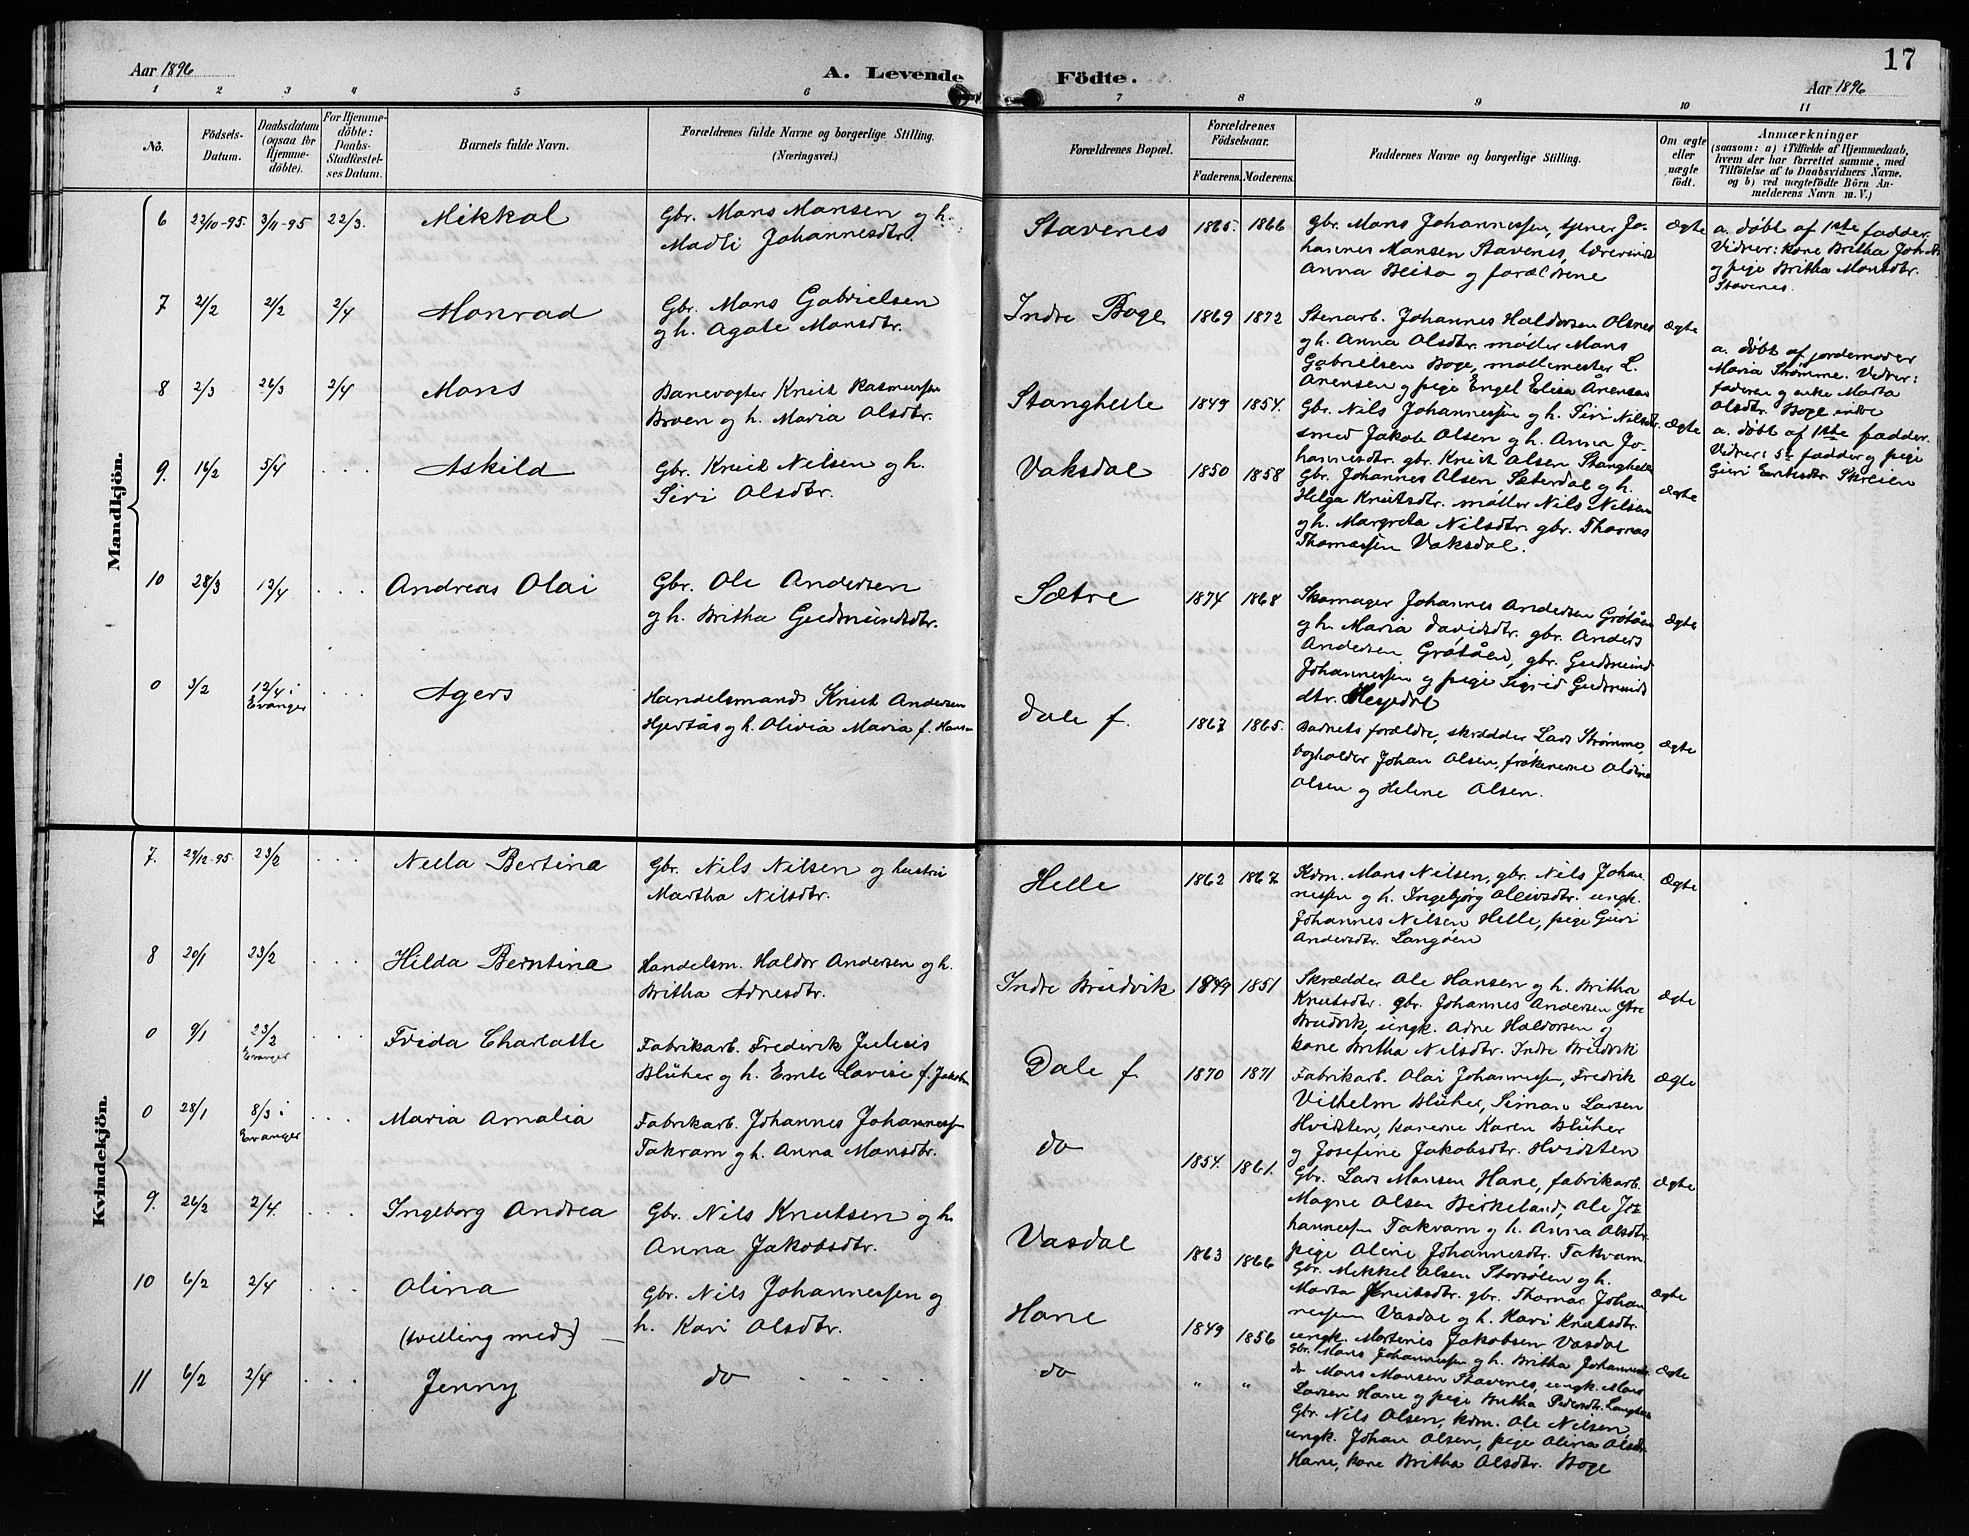 Aar 1896
A. Levende
Födte.
Aar 1896
17
1 2 3 4 5 6 7 8 9 10 11
No.
Födsels-
Datum.
Daabsdatum
(ogsaa for
Hjemme-
döbte).
For Hjemme-
döbte:
Daabs-
Stadfæstel-
ses Datum.
Barnets fulde Navn.
Forældrenes fulde Navne og borgerlige Stilling.
(Næringsvei.)
Forældrenes Bopæl.
Forældrenes
Födselsaar.
Faderens. Moderens.
Faddernes Navne og borgerlige Stilling.
Om ægte
eller
uægte
født.
Anmærkninger
(saasom: a) i Tilfælde af Hjemmedaab,
hvem der har forrettet samme, med
Tilföielse af to Daabsvidners Navne,
og b) ved uægtefödte Börn An-
melderens Navn m. V.)
Mandkjön.
6 22/10-95. 3/11-95 22/3. Mikkal
Gbr. Mons Monsen og h.
Madli Johannesdtr.
Stavenes 1865. 1866
gbr. Mons Johannessen, tjener Jo-
hannes Monsen Stavenes,
Anna og forældrene
ægte
a. døbt af 1ste fadder.
Vidner: kone Britha
og pige Britha Monsdtr.
Stavenes.
7 21/2 21/2 2/4 Monrad
Gbr. Mons Gabrielsen
og h. Agate Monsdtr.
Indre Boge 1869 1872
Stenarb. Johannes Haldorsen Olsnes
og h. Anna Olsdtr. møller Mons
Gabrielsen Boge, møllemester L.
Arensen og pige Engel Elisa Arensen
ægte
a. døbt af jordemoder
Maria Strømme. Vidner:
faderen og enke Marta
Olsdtr. Boge indre
8 2/3 26/3 2/4 Mons
Banevogter Knut Rasmussen
Broen og h. Maria Olsdtr.
Stanghelle 1849 1854.
Gbr. Nils Johannessen og h. Siri Nilsdtr.
smed Jakob Olsen og h. Anna Jo-
hannesdtr. gbr. Knut Olsen Stanghelle
ægte
a. døbt af 1ste fadder.
Vidner: 5te fadder og pige
Guri Eriksdtr. Skreien
9. 16/2 5/4 . . . Askild
Gbr. Knut Nilsen og h.
Siri Olsdtr.
Vaksdal 1850 1858
Gbr. Johannes Olsen Sæterdal og h.
Helga Knutsdtr. møller Nils Nilsen
og h. Margreta Nilsdtr. gbr. Thomas
Thomassen Vaksdal.
ægte
10 28/3 12/4 . . . Andreas Olai
Gbr. Ole Andersen
og h. Britha Gudmundsdtr.
Sætre 1874 1868
Skomager Johannes Andersen Grøtåen
og h. Maria Davidsdtr. gbr. Anders
Andersen Grøtåen, gbr. Gudmund
Johannessen og pige Sigrid Gudmunds
dtr. Hesjedal
ægte
0 3/2 12/4 i
Evanger . . . Agers
Handelsmand Knut Andersen
Hjertås og h. Olivia Maria f. Hansen
Dale f. 1867 1865.
Barnets forældre, skrædder Lars Strømme,
bogholder Johan Olsen, frøkenerne
Olsen og Helene Olsen.
ægte
Kvindekjön.
7. 29/12-95. 23/2 . . . Nella Bertina
Gbr. Nils Nilsen og hustru
Martha Nilsdtr.
Helle 1862 1867.
Kdm. Mons Nilsen, gbr. Nils Johan-
nessen og h. Ingebjørg Oleivsdtr. ungk.
Johannes Nilsen Helle, pige Guri
Andersdtr. Langøen
Ægte
8 20/1 23/2 . . . Hilda Berntina
Handelsm. Haldor Andersen og h.
Britha Adnesdtr.
Indre Brudvik 1849 1851
Skrædder Ole Hansen og h. Britha
Knutsdtr. gbr. Johannes Andersen Ytre
Brudvik, ungk. Adne Haldorsen og
kone Britha Nilsdtr. Indre Brudvik
ægte
0 9/1 23/2
Evanger . . . Frida Charlotte
Fabrikarb. Frederik Julius
Blüher og h. Emle Lovise f. Jakobsen
Dale f. 1870 1871
Fabrikarb. Olai Johannessen, Fredrik
Vilhelm Blüher, Simon Larsen
Hvidsten, konerne Karen Blüher
og Josefine Jakobsdtr. Hvidsten
ægte
0 28/1 8/3 i
Evanger . . . Maria Amalia
Fabrikarb. Johannes Johannessen
Takvam og h. Anna Monsdtr.
do 1854. 1861.
Gbr. Lars Monsen Hane, fabrikarb.
Magne Olsen Birkeland, Ole Jo-
hannessen Takvam og h. Anna Olsdtr.
pige Oline Johannesdtr. Takvam
ægte
9. 26/2 2/4. . . . Ingeborg Andrea
Gbr. Nils Knutsen og h.
Anna Jakobsdtr.
Vasdal 1863 1866
Gbr. Mikkel Olsen Storsølen og h.
Marta Knutsdtr. gbr. Thomas Johan
nessen Vasdal og h. Kari Knutsdtr.
ungk. Martenis Jakobsen Vasdal
ægte
10 6/2 2/4 . . . Olina
(tvilling med)
Gbr. Nils Johannessen og
h. Kari Olsdtr.
Hane 1849 1856
Gbr. Mons Johannessen og h. Britha Johannesdtr.
do Mons Monsen Stavenes, ungk. Mons
Larsen Hane og pige Britha Pedersdtr. Langhelle
ægte
11 6/2 2/4 . . . Jenny
do . . . . .
do " "
Gbr. Nils Olsen, kdm. Ole Nilsen
ungk. Johan Olsen, pige Olina Olsdtr.
Hane, kone Britha Olsdtr. Boge